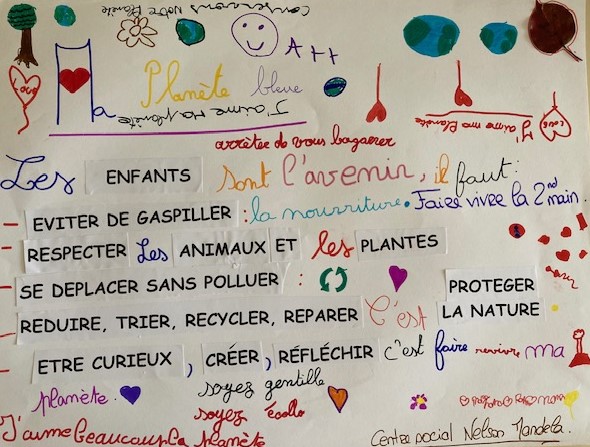 Conservons Notre Planète
A++
Love
Ma Planète bleue
J'aime ma planète
J'aime ma planète
Love
arrêter de vous bagarrer
Les ENFANTS sont l'avenir, il faut :
- EVITER DE GASPILLER : la nourriture. Faire vivre la 2nd main.
- RESPECTER Les ANIMAUX ET les PLANTES
- SE DEPLACER SANS POLLUER :
- REDUIRE, TRIER, RECYCLER, REPARER C'est PROTEGER LA NATURE
- ETRE CURIEUX, CRÉER, RÉFLÉCHIR c'est faire revivre ma
planète.
soyez gentille
soyez écolo
J'aime beaucoup la planète
Centre social Nelson Mandela.